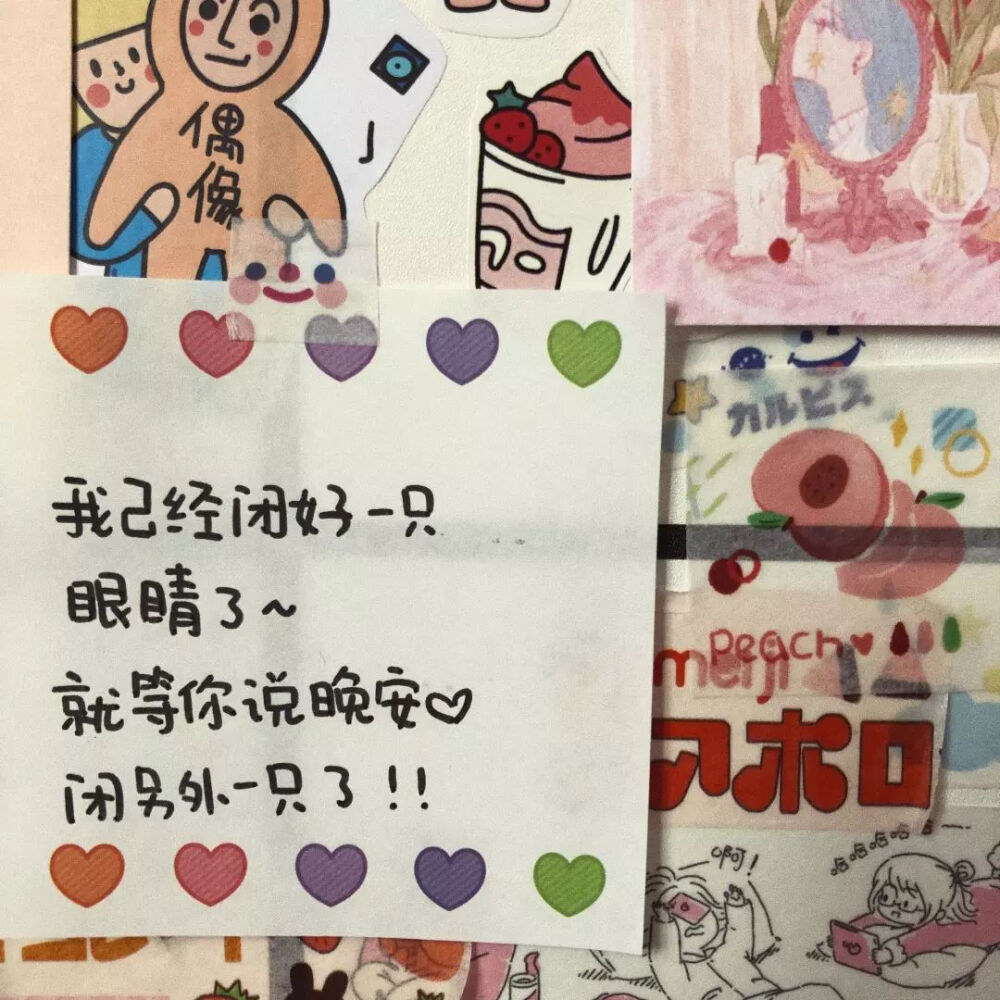 偶
像
我已经闭好一只
眼睛了~
就等你说晚安♡
闭另外一只了!!
カルピス
Peach
meiji
アポロ
啊!
哈哈哈哈